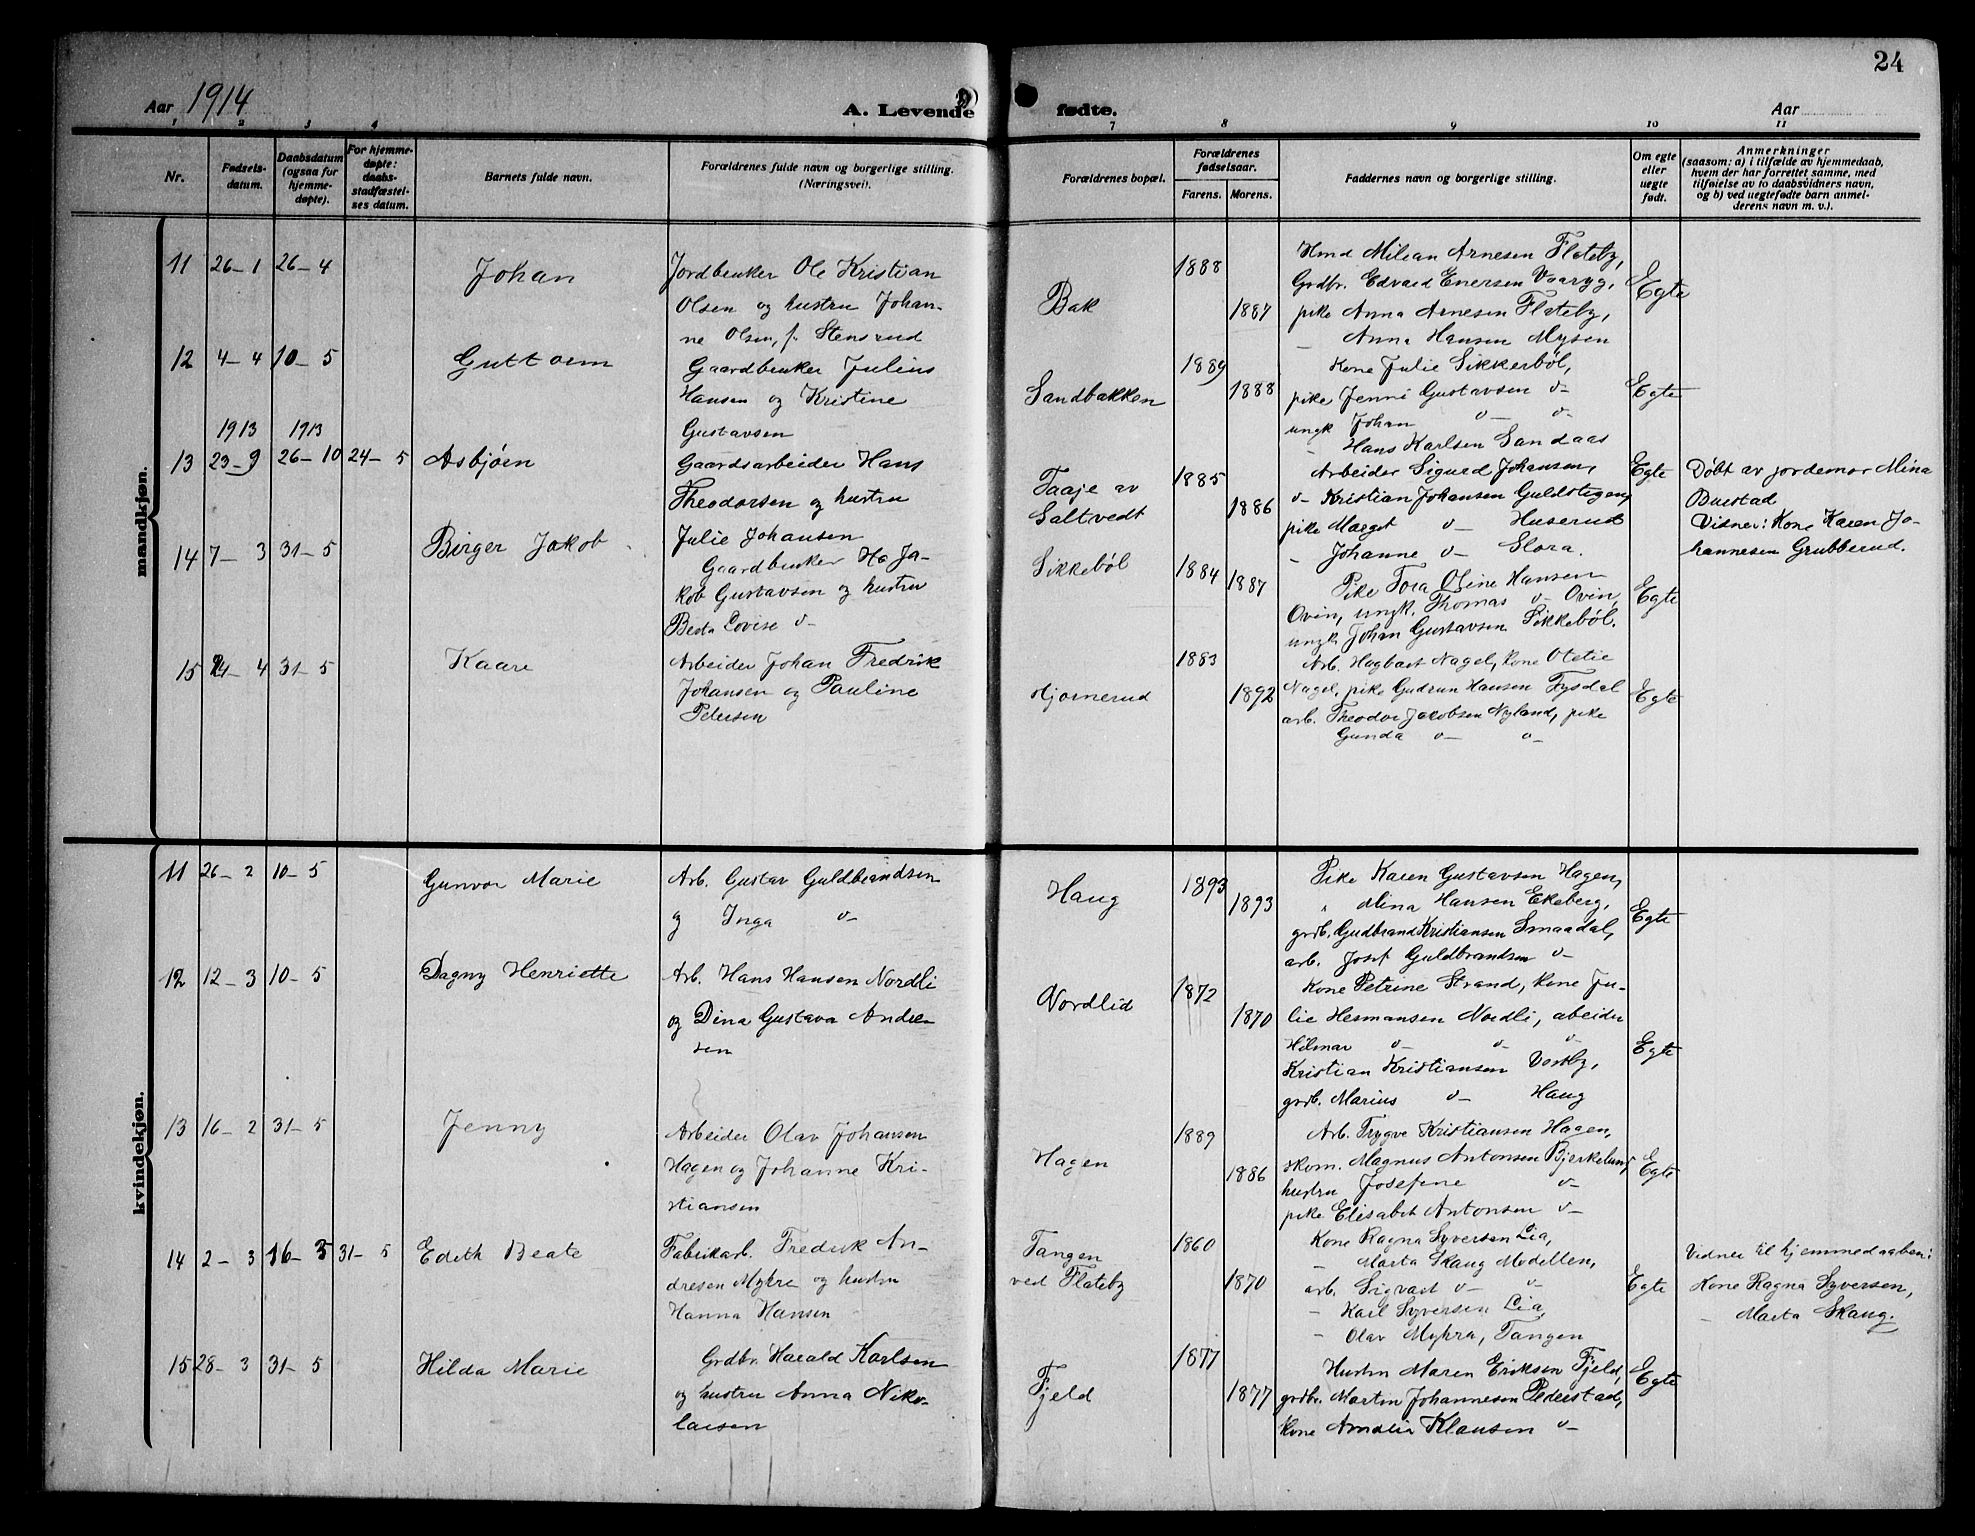 24
Aar 1914
A. Levende fødte.
Aar
1 2 3 4 7 8 9 10 11
Nr.
Fødsels-
datum.
Daabsdatum
(ogsaa for
hjemme-
døpte).
For hjemme-
døpte:
daabs-
stadfæstel-
ses datum.
Barnets fulde navn.
Forældrenes fulde navn og borgerlige stilling.
(Næringsvei).
Forældrenes bopæl.
Forældrenes
fødselsaar.
Farens. Morens.
Faddernes navn og borgerlige stilling.
Om egte
eller
uegte
født.
Anmerkninger
(saasom: a) i tilfælde av hjemmedaab,
hvem der har forrettet samme, med
tilføielse av to daabsvidners navn,
og b) ved uegtefødte barn anmel-
derens navn m. v.).
mandkjøn.
11 26-1 26-4
Johan
Jordbruker Ole Kristian
Olsen og hustru Johan-
ne Olsen, f. Stensrud
Bak
1888
1887
Hmd Milian Arnesen Flateby,
Grdbr. Edvard Enersen Vaaryg,
pike Anna Arnesen Flateby,
- Anna Hansen Mysen
Egte
12 4-4 10-5
Guttorm
Gaardbruker Julius
Hansen og Kristine
Gustavsen
Sandbakken
1889
1888
Kone Julie Sikkerbøl,
pike Jenni Gustavsen v-
ungk Johan v- v-
- Hans Karlsen Sandaas
Egte
1913 1913
13 23-9 26-10 24-5
Asbjørn
Gaardsarbeider Hans
Theodorsen og hustru
Julie Johansen
Taaje av
Saltvedt
1885
1886
Arbeider Sigurd Johansen,
v- Kristian Johansen Guldstigen,
pike Marget v- Huserud
- Johanne v- Slora.
Egte
Døbt av jordemor Mina
Bustad
Visner: Kone Karen Jo-
hannesen Grubberud.
14 7-3 31-5
Birger Jakob
Gaardbruker Ho Ja-
kob Gustavsen og hustru
Berta Lovise v-
Sikkebøl
1884
1887
Pike Tora Oline Hansen
Ovin, ungk. Thomas v- Ovin,
ungk Johan Gustavsen Sikkebøl.
Egte
15 24-4 31-5
Kaare
Arbeider Johan Fredrik
Johansen og Pauline
Petersen
Hjørnerud
1883
1892
Arb. Hagbart Nagel, kone Otetie
Nagel, pike Gudrun Hansen Fysdal
arb. Theodor Jakobsen Nyland, pike
Gunda v- v-
Egte
kvindekjøn.
11 26-2 10-5
Gunvor Marie
Arb. Gustav Guldbrandsen
og Inga v-
Haug
1893
1893
Pike Karen Gustavsen Hagen,
" Mina Hansen Ekeberg,
grdb. Gudbrand Kristiansen Smaadal,
arb. Josef Guldbrandsen v-
Egte
12 12-3 10-5
Dagny Henriette
Arb. Hans Hansen Nordli
og Dina Gustava Andre-
sen
Nordlid
1872
1870
Kone Petrine Strand, kone Ju-
lie Hermansen Nordli, abeider
Hilmar v- v- v-
Kristian Kristiansen Vestby,
grdb. Marius v- Haug
Egte
13 16-2 31-5
Jenny
Arbeider Olav Johansen
Hagen og Johanne Kri-
stiansen
Hagen
1889
1886
Arb. Trygve Kristiansen Hagen,
skom. Magnus Antonsen Bjerkelund
hustru Josefine v-
pike Elisabet Antonsen v-
Egte
14 2-3 16-3 31-5
Edith Beate
Fabrikarb. Fredrik An-
dresen Myhre og hustru
Hanna Hansen
Tangen
ved Flateby
1860
1870
Kone Ragna Syversen Lia,
- Marta Skaug Modellen,
arb. Sigvart v- v-
- Karl Syversen Lia,
- Olav Myhra, Tangen
Egte
Vidner til hjemmedaaben:
Kone Ragna Syversen,
- Marta Skaug.
15 28-3 31-5
Hilda Marie
Grdbr Harald Karlsen
og hustru Anna Niko-
laisen
Fjeld
1877
1877
Hustru Maren Eriksen Fjeld,
grdbr. Martin Johannesen Pederstad,
kone Amalia Klausen v-
Egte